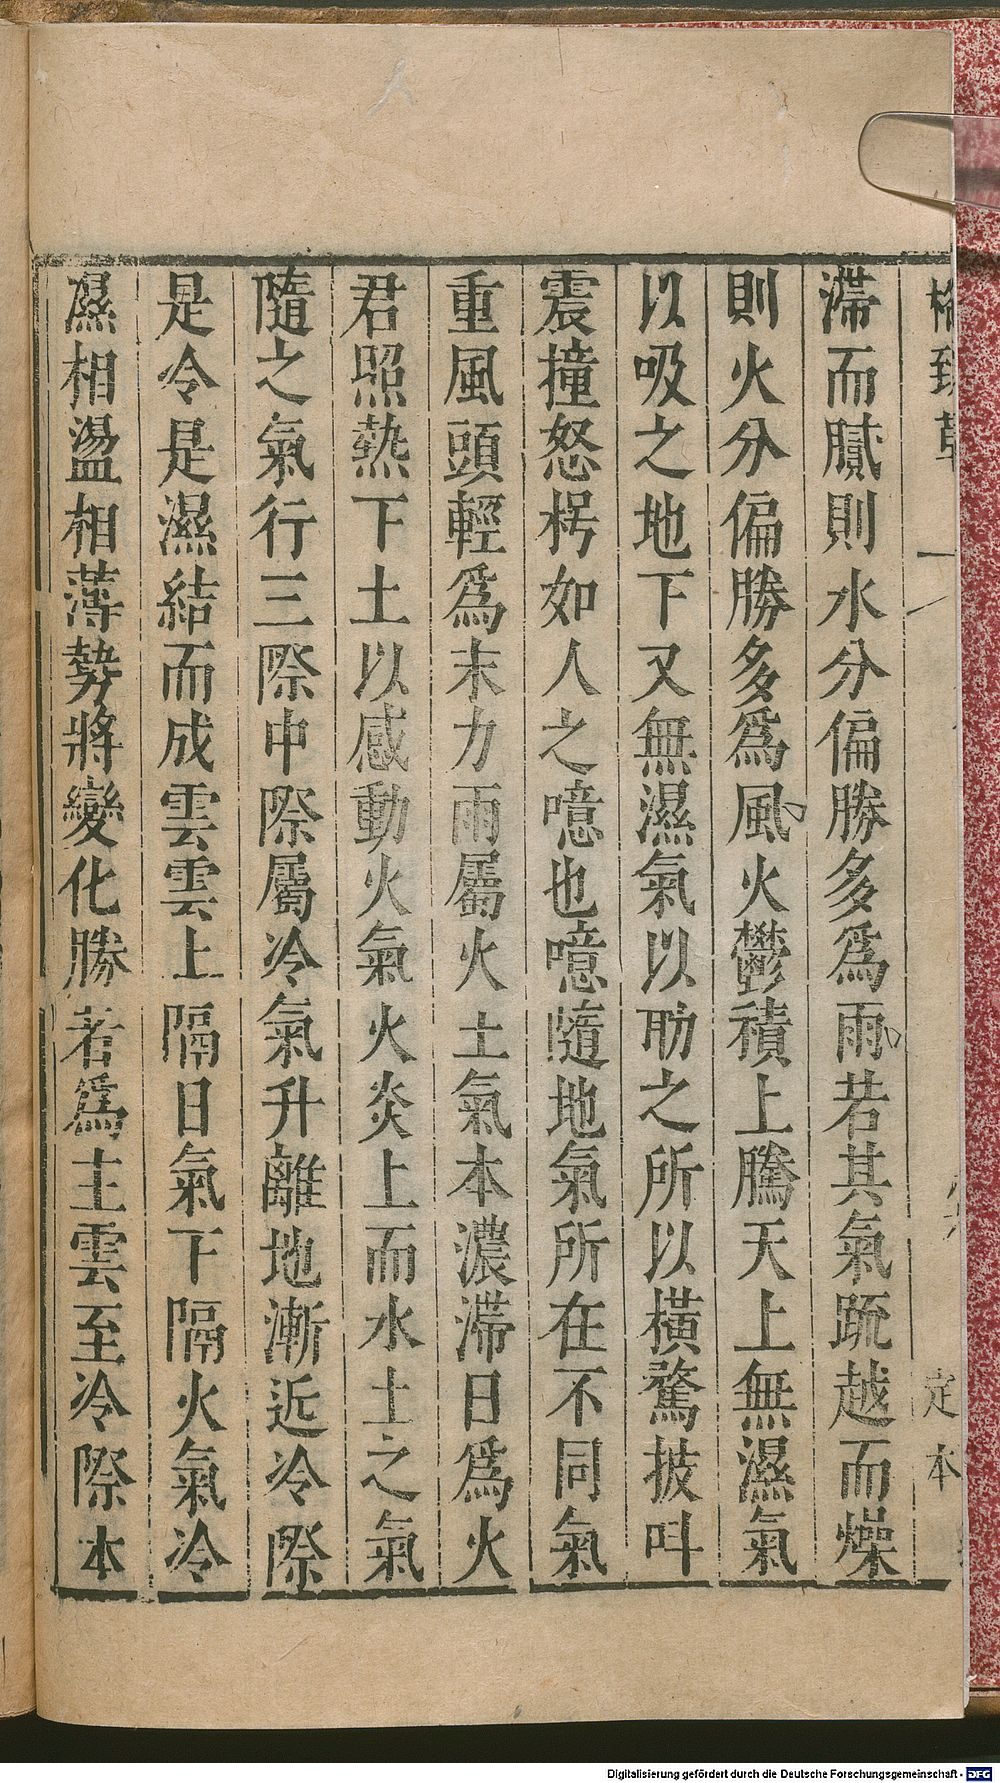 格致草
定本
滯而膩則水分偏勝多爲雨若其氣䟽越而燥
則火分偏勝多爲風火鬱積上騰天上無濕氣
以吸之地下又無濕氣以助之所以橫騖披叫
震撞怒枵如人之噫也噫隨地氣所在不同氣
重風頭輕爲末力雨屬火土氣本濃滯日爲火
君照熱下土以感動火氣火炎上而水土之氣
隨之氣行三際中際屬冷氣升離地漸近冷際
是令是濕結而成雲雲上隔日氣下隔火氣冷
濕相盪相薄勢將變化勝若爲主雲至冷際本
Digitalisierung gefördert durch die Deutsche Forschungsgemeinschaft - DFG